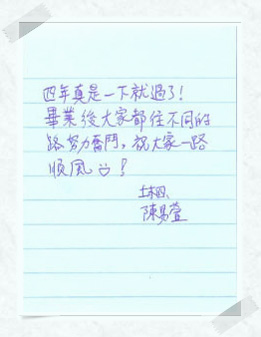 四年真是一下就過了!
畢業後大家都往不同的
路努力奮鬥,祝大家一路
順風 ü !
土木四
陳易萱